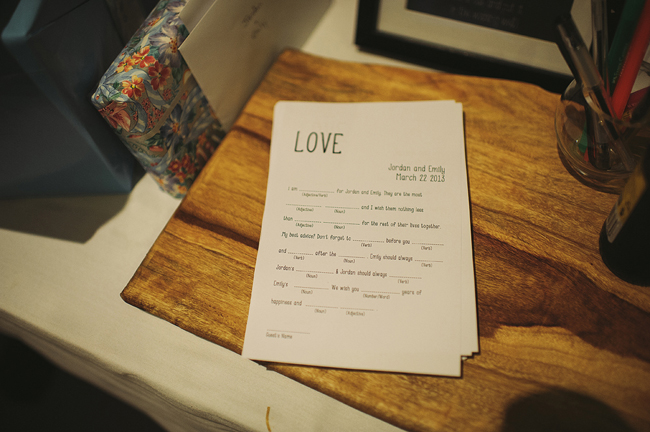 LOVE
Jordan and Emily
March 22 2013
I am ____________ for Jordan and Emily. They are the most
(Adjective/Verb)
____________ ____________ and I wish them nothing less
(Adjective) (Noun)
than ____________ ____________ for the rest of their lives together.
(Adjective) (Noun)
My best advice? Don't forget to ____________ before you ____________
(Verb) (Verb)
and ____________ after the ____________. Emily should always ____________
(Verb) (Noun) (Verb)
Jordan's ____________ & Jordan should always ____________
(Noun) (Verb)
Emily's ____________. We wish you ____________ years of
(Noun) (Number/Word)
happiness and ____________ ____________.
(Noun) (Adjective)
____________
Guest's Name